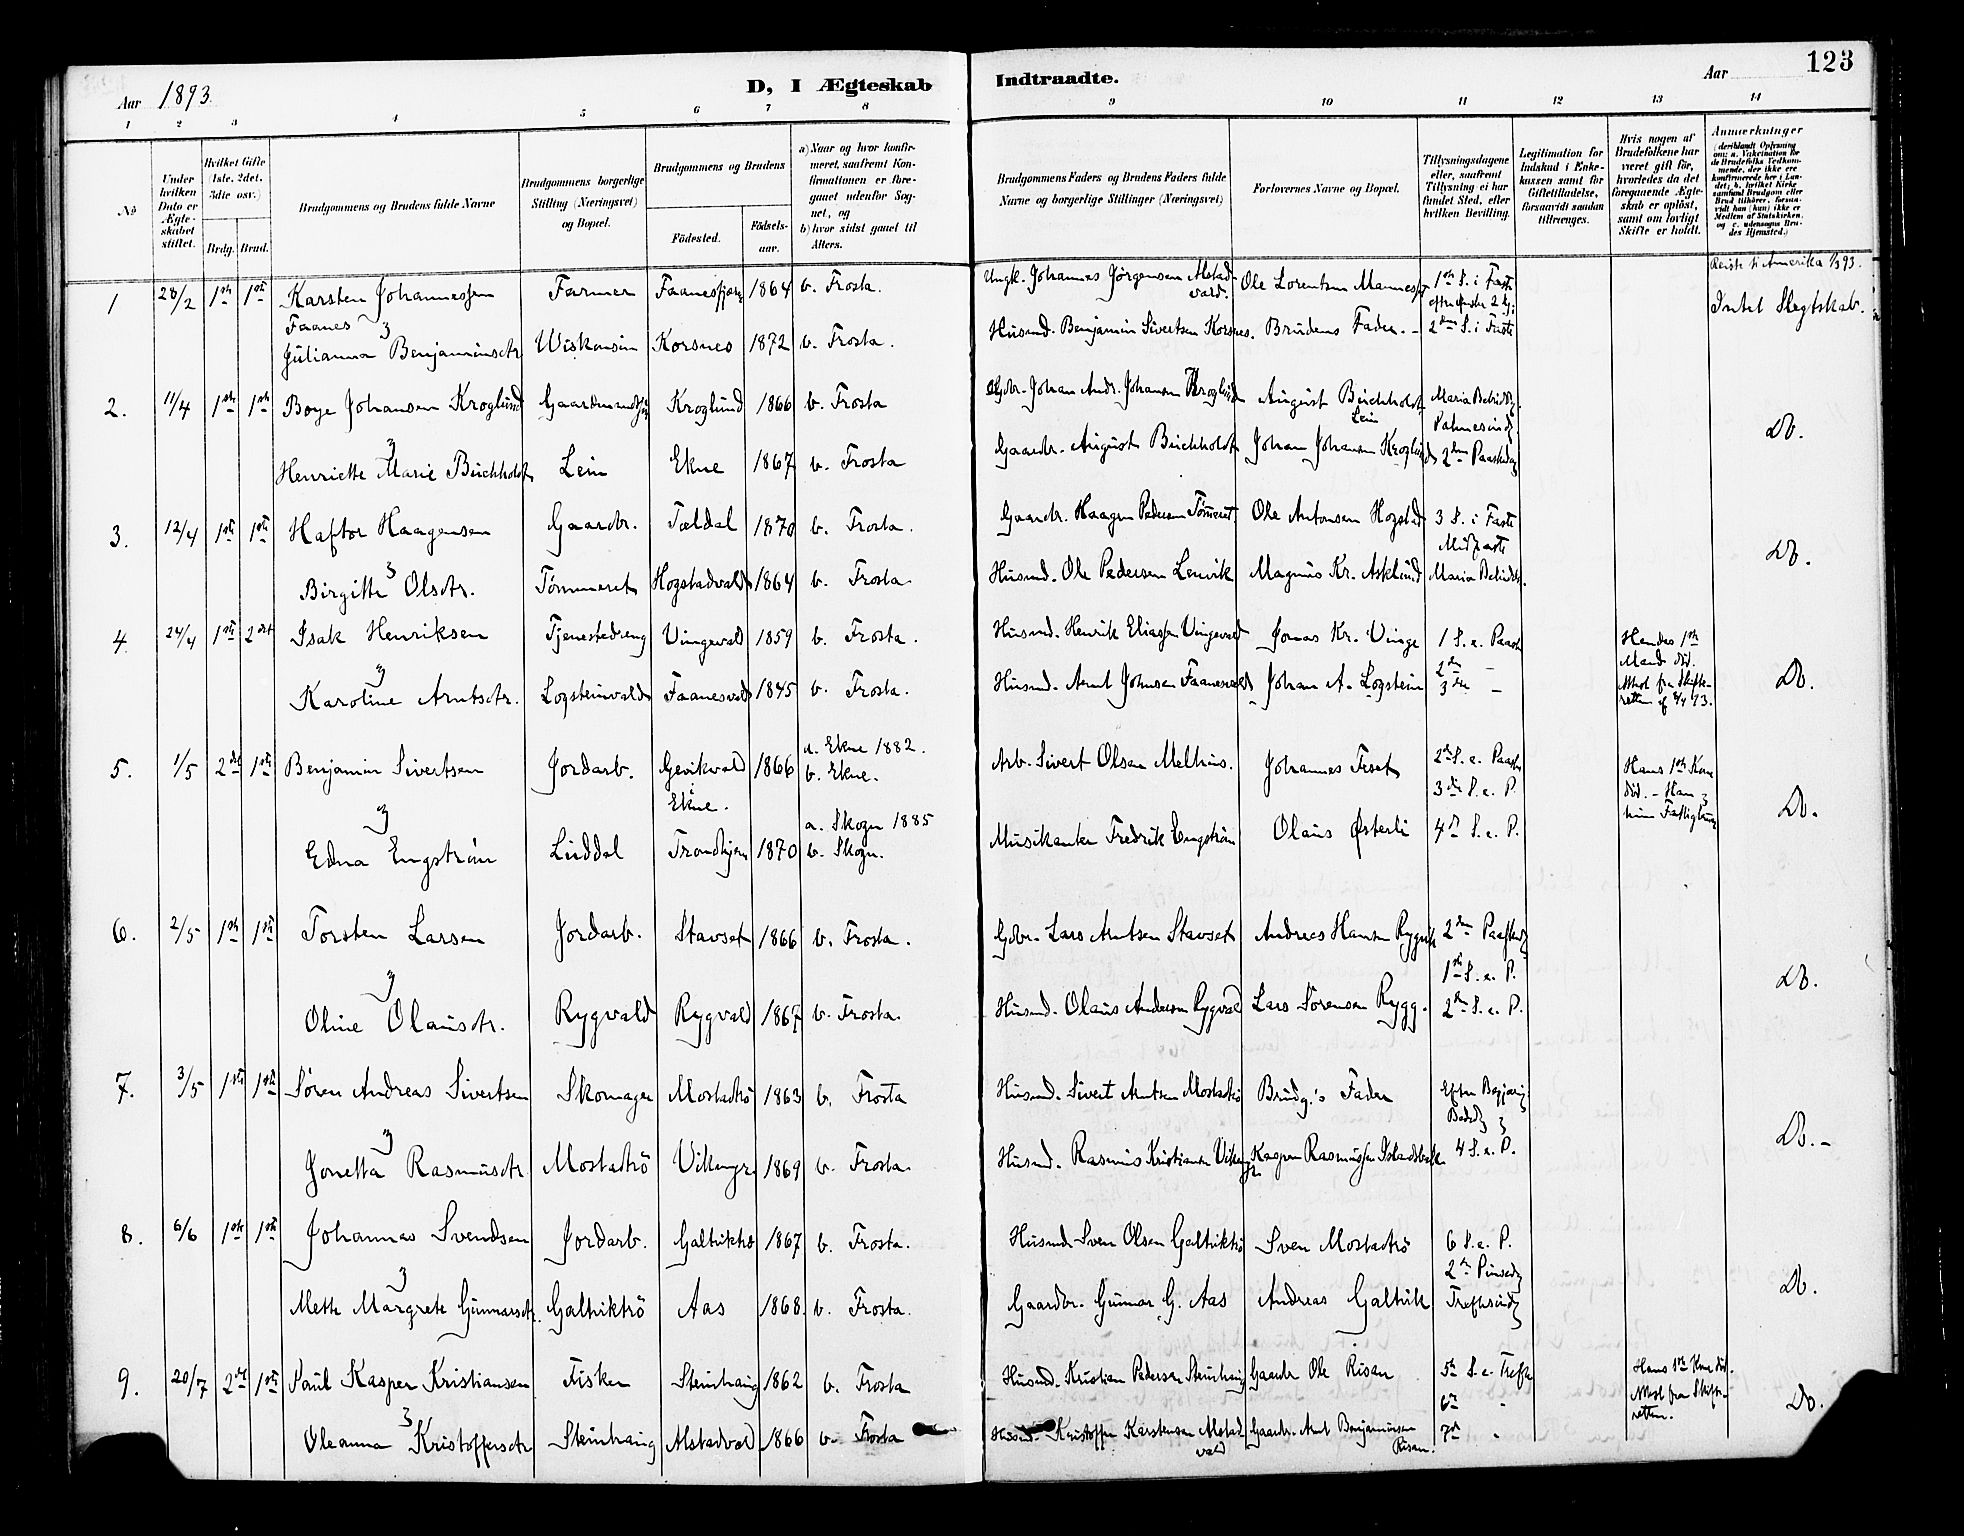 Aar 1893.
D, I Ægteskab Indtraadte.
Aar
123
1 2 3 4 5 6 7 8 9 10 11 12 13 14
No
Under hvilken Dato er Ægteskabet stiftet.
Hvilket Gifte (1ste, 2det, 3die osv.)
Brdg. Brud.
Brudgommens og Brudens fulde Navne
Brudgommens borgerlige Stilling (Næringsvei) og Bopæl.
Brudgommens og Brudens
Fødested.
Fødselsaar.
a) Naar og hvor konfirmeret, saafremt Konfirmationen er foregaaet udenfor Sognet, og
b) hvor sidst gaaet til Alters.
Brudgommens Faders og Brudens Faders fulde Navne og borgerlige Stillinger (Næringsvei)
Forlovernes Navne og Bopæl.
Tillysningsdagene eller, saafremt Tillysning ei har fundet Sted, efter hvilken Bevilling.
Legitimation for Indskud i Enkekassen samt for Giftetilladelse, forsaavidt saadan tiltrænges.
Hvis nogen af Brudefolkene har været gift før, hvorledes da det foregaaende Ægteskab er opløst, samt om lovligt Skifte er holdt.
Anmærkninger
Reiste ti Amerika 1/3 93.
1 28/2 1ste 1ste Karsten Johannessen Farmer 1864 b. Frosta. Ungk. Johannes Jörgensen Alstadvald. Ole Lorentsen 1ste S. i Faste Intet Slegtskab.
Faanes
Julianna Benjaminsdtr. Wiskonsin Korsnes 1872 b. Frosta. Husmd. Benjamin Sivertsen Korsnes. Brudens Fader. - 2den S. i Faste
2. 11/4 1ste 1ste Boye Johansen Kroglund Kroglund 1866 b. Frosta Gdbr. Johan Andr. Johansen Kroglund August Buchholdt Lein Do.
Palmesund.
Henriette Marie Buchholdt Lein Ekne 1867 b. Frosta Gaardbr. August Buchholdt Johan Johansen Kroglund 2den Paaskedag
3. 12/4 1ste 1ste Haftor Haagensen Gaardbr. 1870 b. Frosta. Gaardbr. Haagen Pedersen Tömmeret Ole Antonsen Hogstad 3 S. i Faste Do.
Midfaste
Birgitte Olsdtr. Tömmeret Hogstadvald 1864 b. Frosta. Husmd. Ole Pedersen Lenvik Magnus Kr. Asklund
4. 24/4 1ste 2det Isak Henriksen Tjenestedreng Vingevald 1859 b. Frosta. Husmd. Henrik Eliassen Vingevald Jonas Kr. Vinge 1 S. e. Paaske Hendes 1ste Mand död.
2den -
Karoline Arntsdtr. Logsteinvald Faanesvald 1845 b. Frosta. Husmd. Arnt Johnsen Faanesvald Johan A. Logstein 3die - Do.
5. 1/5 2det 1ste Benjamin Sivertsen Jordarb. Gevikvald Ekne. 1866 a. Ekne 1882. b. Ekne. Arb. Sivert Olsen Melhus. Johannes Teset 2den S. e. Paaske Hans 1ste Kone död. - Do.
3die S. e. P.
Edna Engström Luddal Trondhjem 1870 a. Skogn 1885 b. Skogn. Musikanter Fredrik Engström Olaus Østerli 4de S. e. P.
6. 2/5 1ste 1ste Torsten Larsen Jordarb. Stavset 1866 b. Frosta. Gdbr. Lars Arntsen Stavset Andreas Hansen 2den Paaskedag Do.
1ste S. e. P.
Oline Olausdtr. Rygvald Rygvald 1867 b. Frosta. Husmd. Olaus Andersen Rygvald Lars Sörensen Rygg. 2den S. e. P.
7. 3/5 1ste 1ste Sören Andreas Sivertsen Skomager Mostadtrö 1863 b. Frosta Husmd. Sivert Arntsen Mostadtrö Brudg.'s Fader Do. -
Jonetta Rasmusdtr. Mostadtrö 1869 b. Frosta. Husmd. Rasmus Kristiansen Kasper Rasmussen 4 S. e. P.
8. 6/6 1ste 1ste Johannes Svendsen Jordarb. Galtviktrö 1867 b. Frosta. Husmd. Sven Olsen Galtviktrö Sven Mostadtrö 6 S. e. P.
2den Pinsedag
Mette Margrete Gunnarsdtr. Galtviktrö Aas 1868. b. Frosta. Gaardbr. Gunnar G. Aas Andreas Galtvik Do.
9. 20/7 2det 1ste Paul Kasper Kristiansen Fisker Steinhaug 1862 b. Frosta Husmd. Kristian Pedersen Steinhaug Gaardbr. Ole Risan 5te S. e. Hans 1ste Kone död. Do.
6te "
Oleanna Kristoffersdtr. Steinhaug Alstadvald 1866 b. Frosta Husmd. Kristoffer Karstensen Alstadvald Gaardbr. Arnt Benjaminsen Risan. 7de "